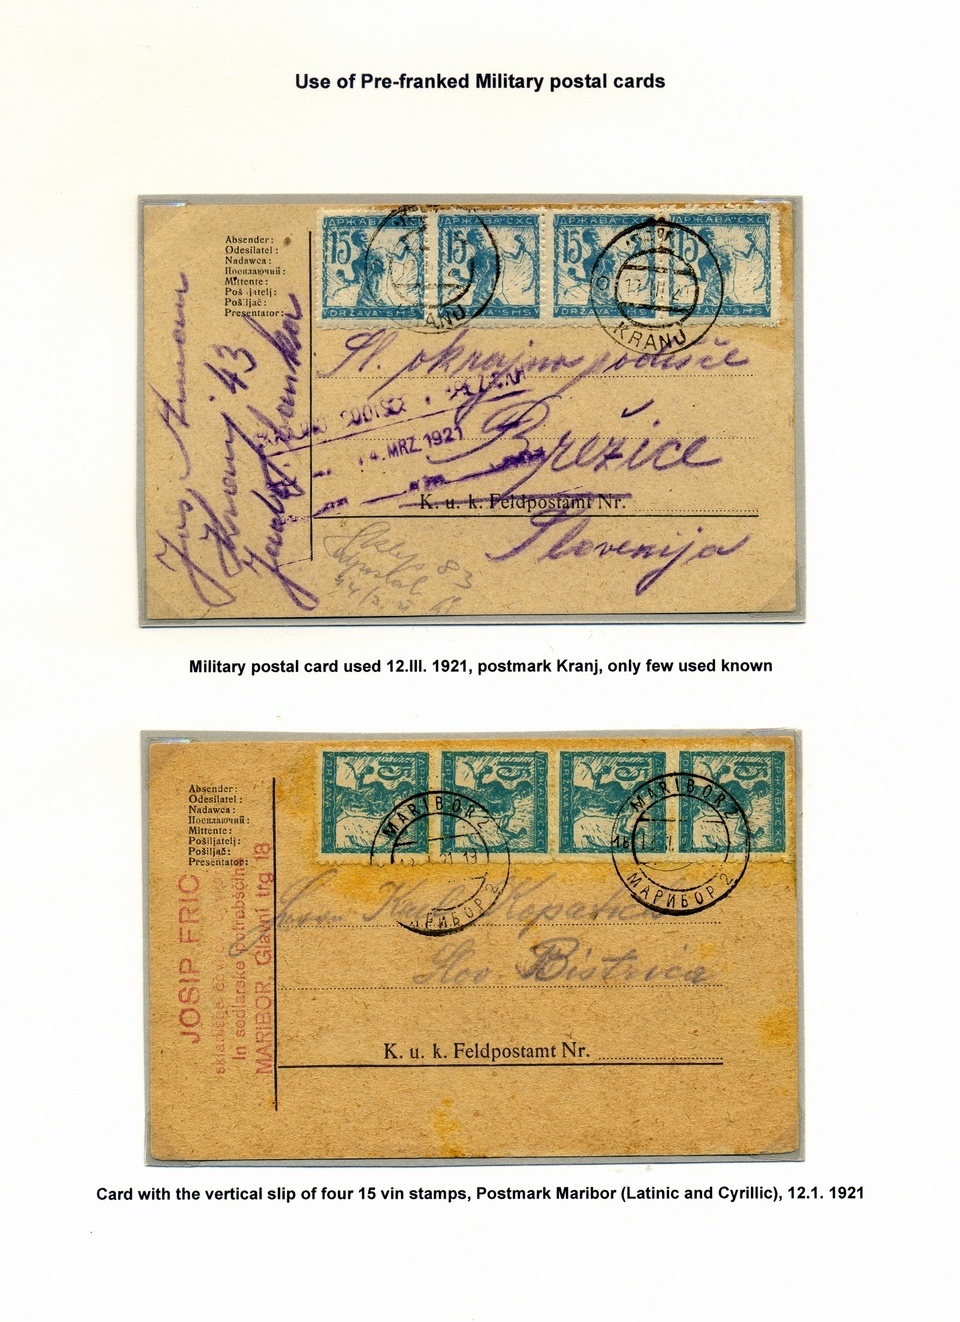 Use of Pre-franked Military postal cards
Absender:
Odesilatel:
Nadawca:
Посилаючий:
Mittente:
Pošiljatelj:
Pošiljač:
Presentator:
15 15 15 15
ДРЖАВА СХС ДРЖАВА СХС ДРЖАВА СХС ДРЖАВА СХС
DRŽAVA SHS DRŽAVA SHS DRŽAVA SHS
KRANJ
KRANJ
Kranj 43
St. okrajno sodišče
14. MRZ. 1921
Brežice
K. u. k. Feldpostamt Nr.
Slovenija
Military postal card used 12.III. 1921, postmark Kranj, only few used known
Absender:
Odesílatel:
Nadawca:
Посилаючий:
Mittente:
Pošiljatelj:
Pošiljač:
Presentator:
15 15 15 15
MARIBOR 2
МАРИБОР 2
MARIBOR 2
МАРИБОР 2
JOSIP FRIC
in sedlarske potrebščine
MARIBOR, Glavni trg 18
Slov. Bistrica
K. u. k. Feldpostamt Nr.
Card with the vertical slip of four 15 vin stamps, Postmark Maribor (Latinic and Cyrillic), 12.1. 1921